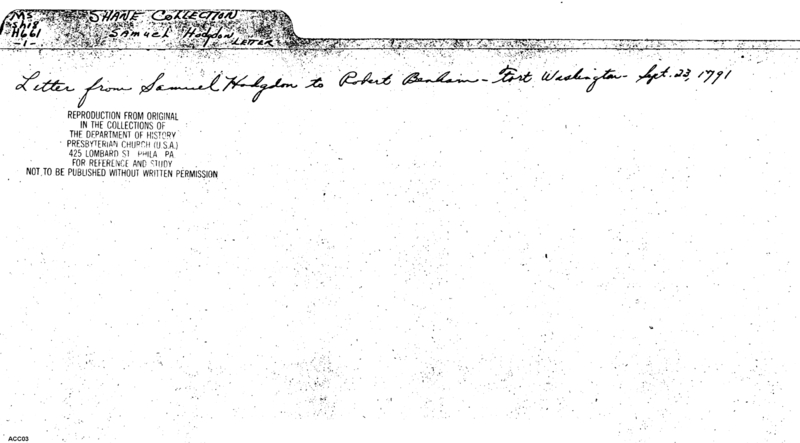 MS
Sh18
H661
-1-
SHANE COLLECTION
Samuel Hodgdon
LETTER
Letter from Samuel Hodgdon to Robert Benham - Fort Washington - Spt. 23, 1791
REPRODUCTION FROM ORIGINAL
IN THE COLLECTIONS OF
THE DEPARTMENT OF HISTORY
PRESBYTERIAN CHURCH (U.S.A.)
425 LOMBARD ST. PHILA. PA.
FOR REFERENCE AND STUDY
NOT TO BE PUBLISHED WITHOUT WRITTEN PERMISSION
ACC03